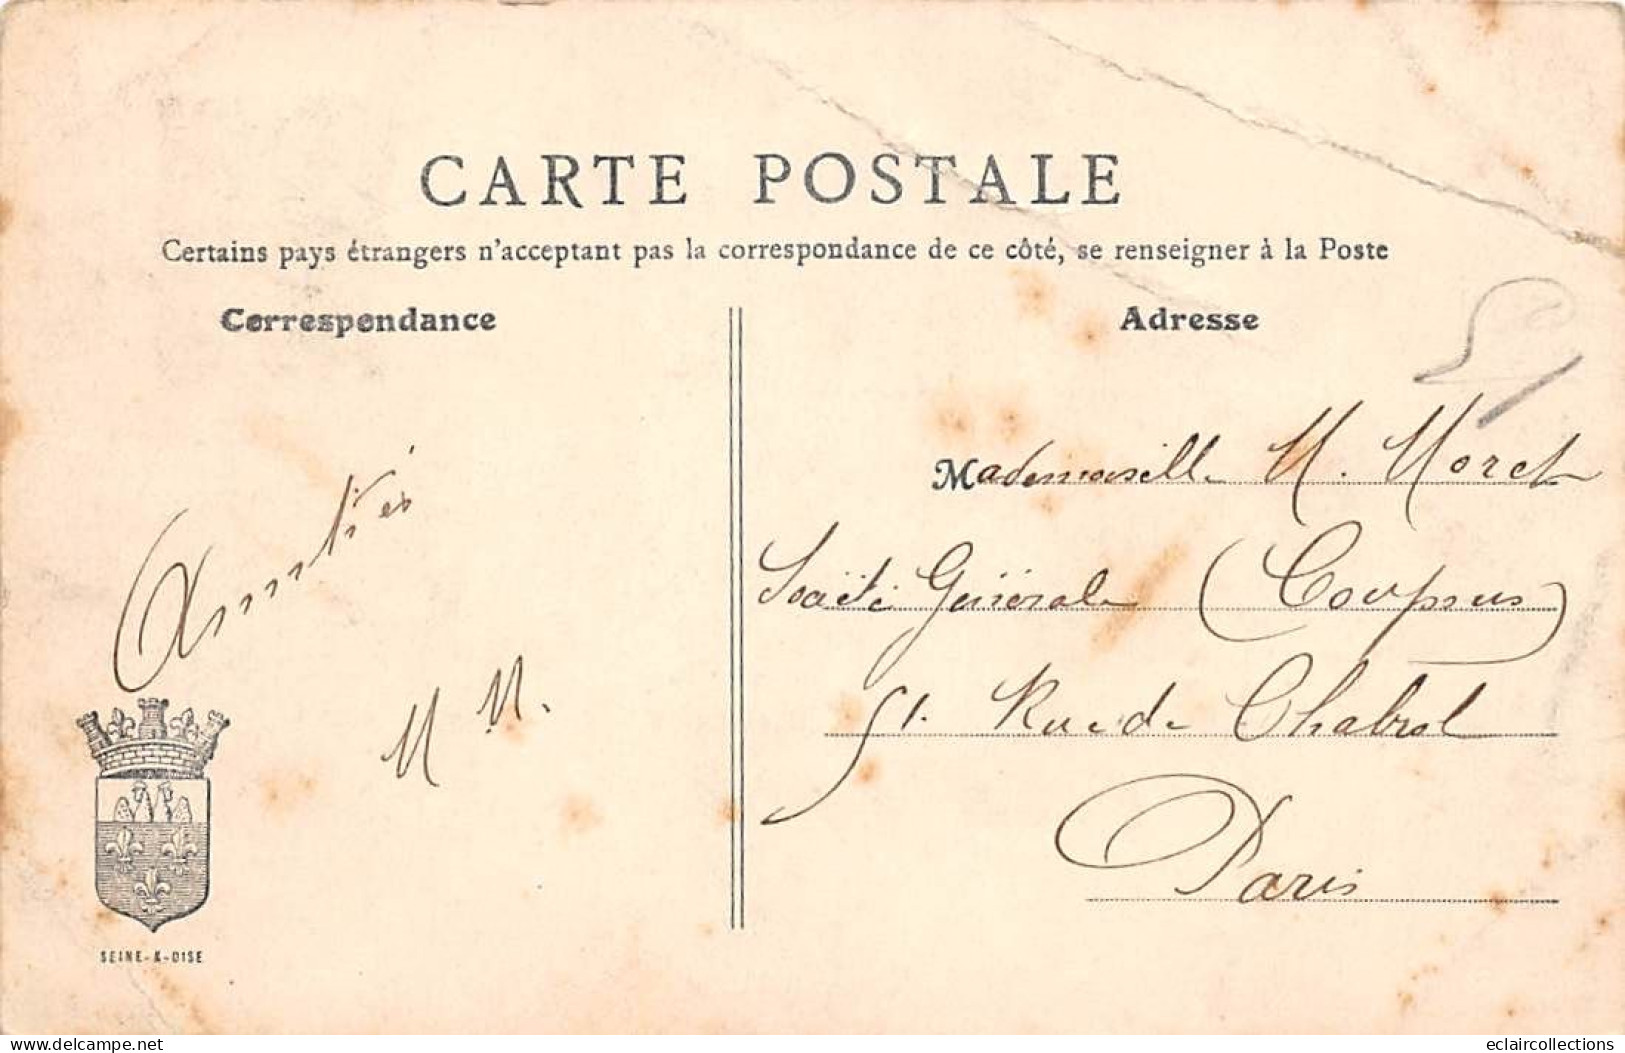 CARTE POSTALE
Certains pays étrangers n'acceptant pas la correspondance de ce côté, se renseigner à la Poste
Correspondance
Adresse
Amitiés
M M.
Mademoiselle M. Moret
Société Générale (Coupons)
51. Rue de Chabrol
Paris
SEINE-&-OISE
delcampe.net
eclaircollections